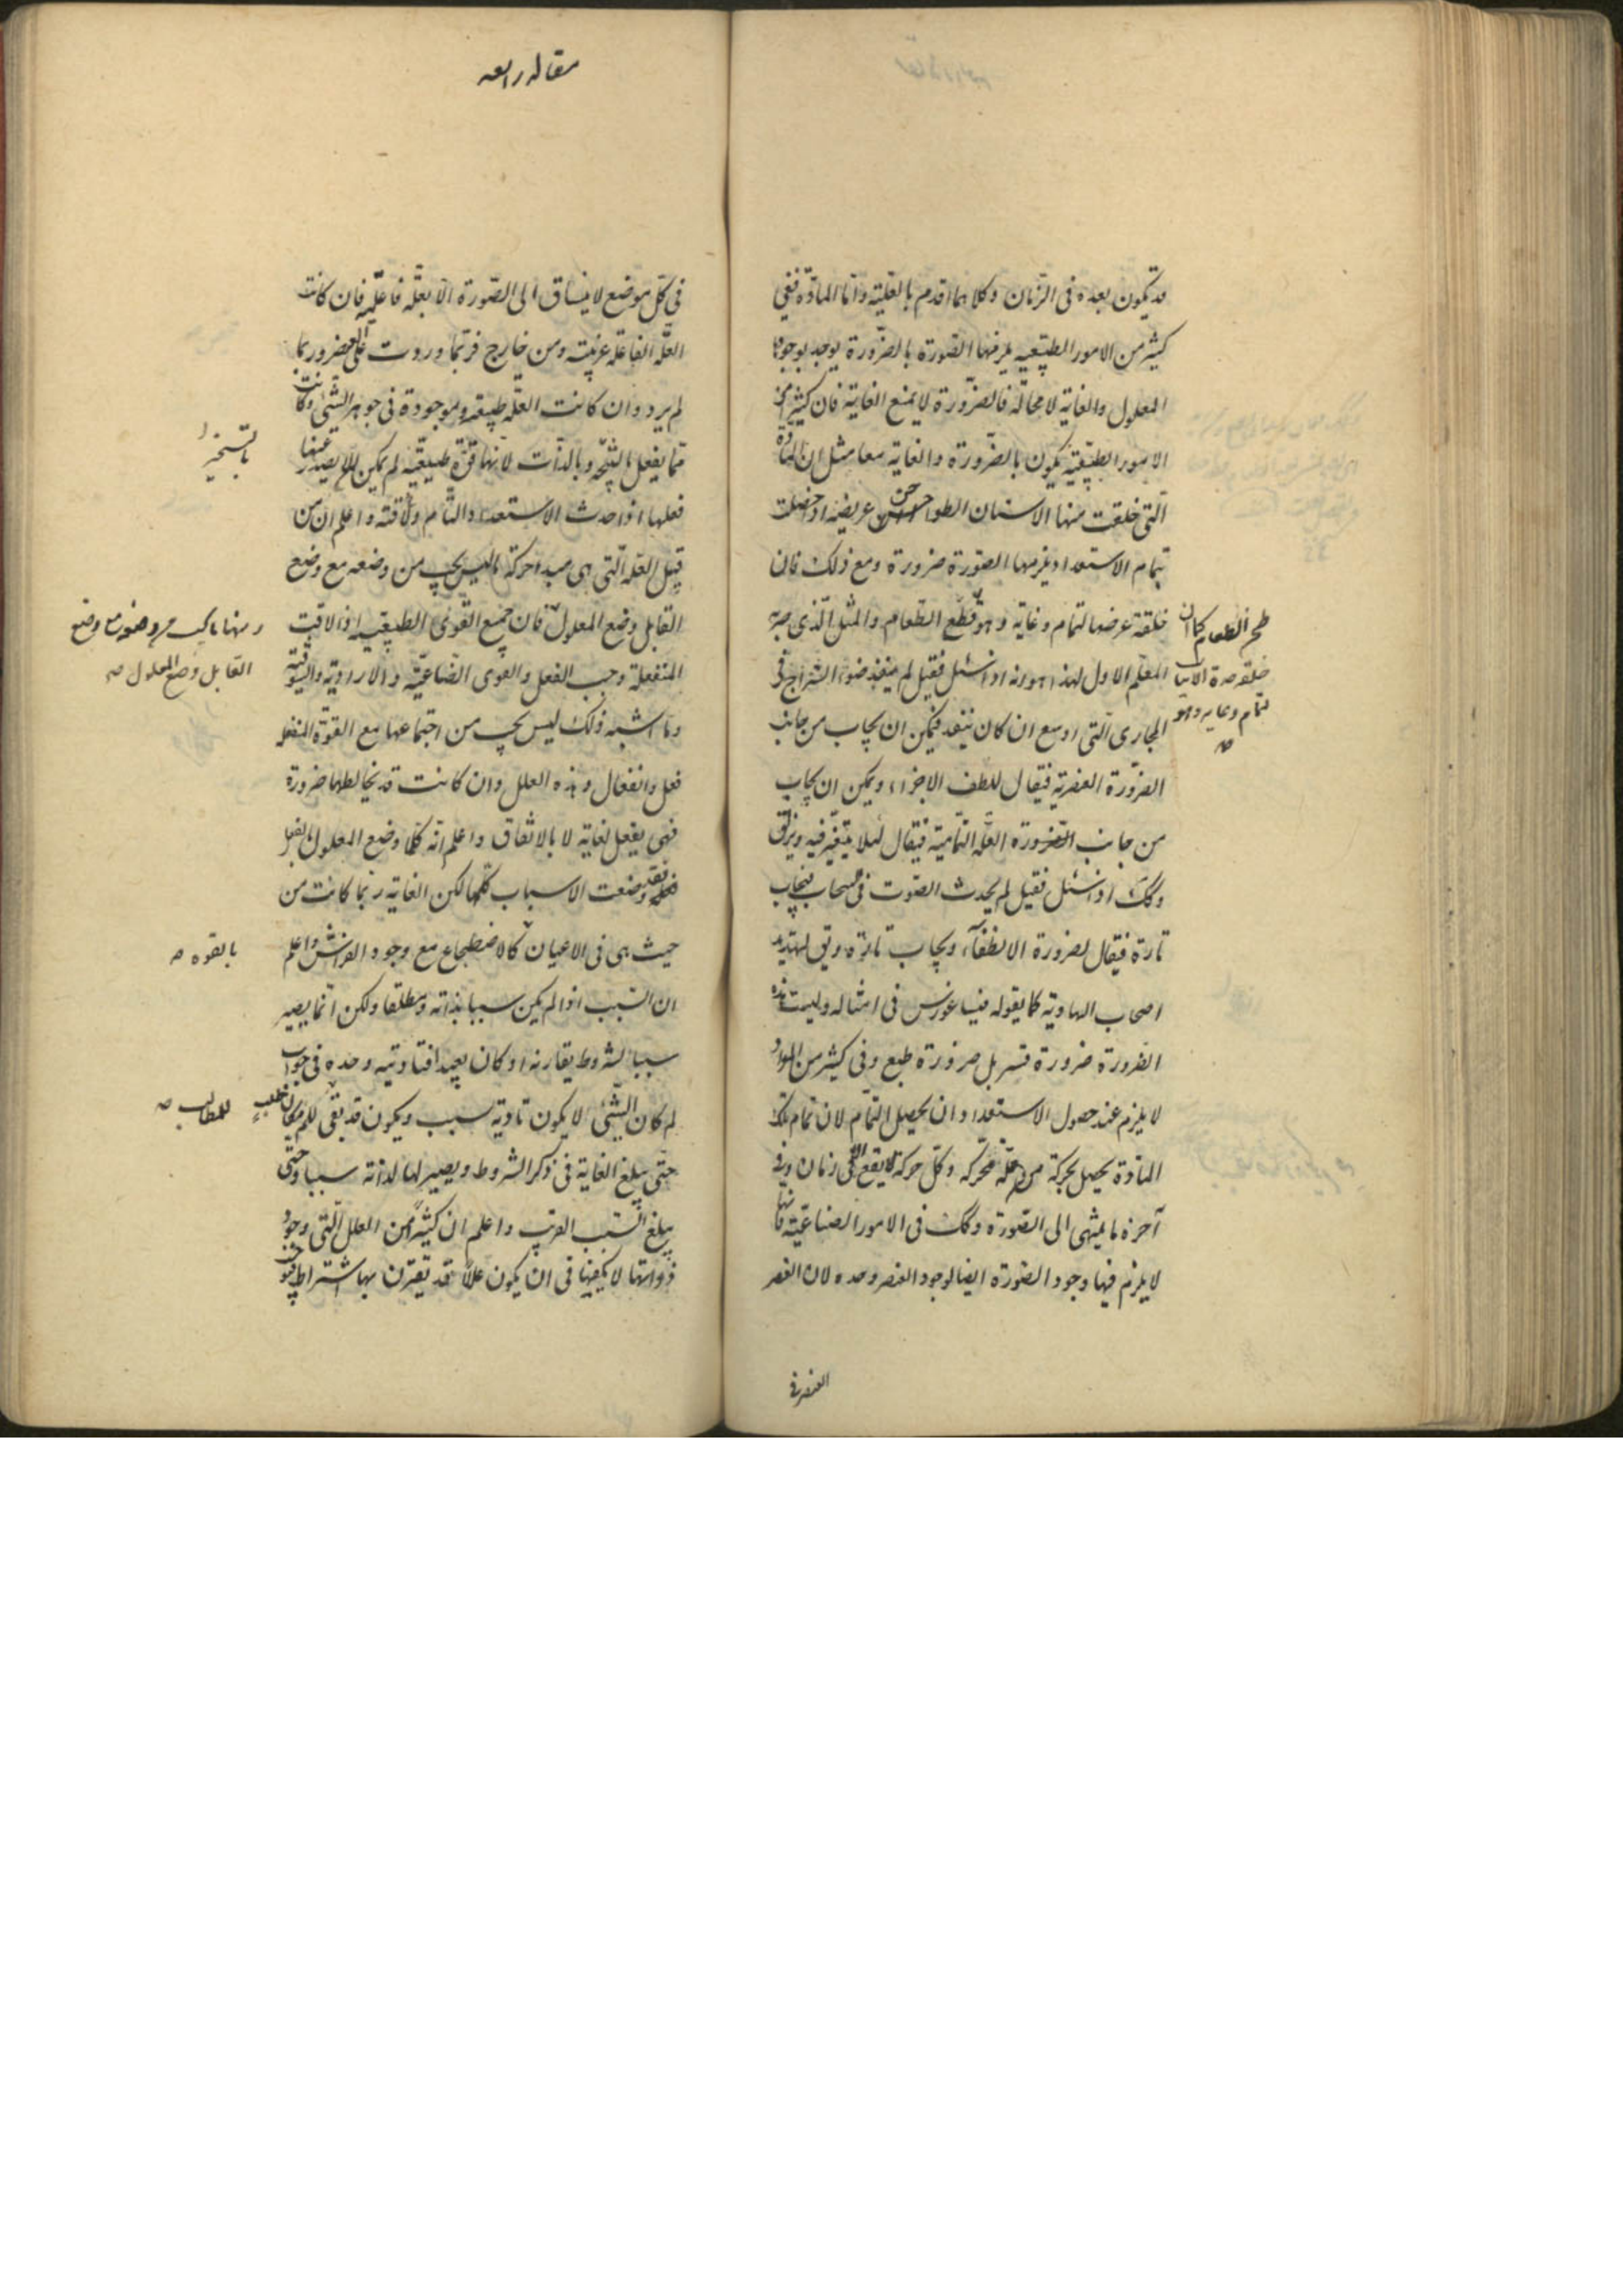 قد تكون بعده فى الزمان وكلاهما اقدم بالعلية واما المادة ففى
كثير من الامور الطبيعية يلزمها الصورة بالضرورة يوجد بوجوه
المعلول والغاية لا محالة فالضرورة لا يمنع الغاية فان كثيرا من
الامور الطبيعية يكون بالضرورة والغاية معا مثل ان المادة
التى خلقت منها الاسنان الطواحن عريضة اذ احصلت
بتمام الاستعداد يلزمها الصورة ضرورة ومع ذلك فان
خلقة عرضها لتمام وغاية وهو قطع الطعام والمثل الذى
طحن الطعام كما ان
خلقة حدة الانياب
لتمام وغاية وهو
صح
المعلم الاول لهذا هو انه اذا سئل فقيل لم ينفذ ضوء السراج فى
المجارى التى اوسع ان كان ينفد فيمكن ان يجاب من جانب
الضرورة العنصرية فيقال للطف الاجزاء ويمكن ان يجاب
من جانب الضرورة العلة التمامية فيقال لئلا يتعثر فيه ويزلق
وكك اذا سئل فقيل لم يحدث الصوت فى السحاب فيجاب
تارة فيقال لضرورة الانطفاء ويجاب تارة ويق لتهديد
اصحاب الهاوية كما يقوله فيثاغورس فى امثاله وليست هذه
الضرورة ضرورة قسر بل ضرورة طبع وفى كثير من المواد
لا يلزم عند حصول الاستعداد ان يحصل التمام لان تمام تلك
المادة يحصل بحركة من علة محركة وكل حركة لا يقع الا فى زمان وفى
آخره ما ينتهى الى الصورة وكك فى الامور الصناعية فانها
لا يلزم فيها وجود الصورة ايضا لوجود العنصر وحده لان العنصر
العنصر فى
مقاله رابعه
فى كل موضع لا ينساق الى الصورة الا بعلة فاعلية فان كانت
العلة الفاعلة غريبة ومن خارج فربما وردت على العنصر وربما
لم يرد وان كانت العلة طبيعة وموجودة فى جوهر الشئ وكانت
مما يفعل بالتسخير وبالذات لانها قوة طبيعية لم يمكن ان لا يصدر عنها
بالتسخير
فعلها اذا حدث الاستعداد التام ولاقته واعلم ان من
قبيل العلة التى هى مبدا حركة ما ليس يجب من وضعه مع وضع
القابل وضع المعلول فان جميع القوى الطبيعية اذا لاقت
ومنها ما يجب من وضعه مع وضع
القابل وضع المعلول صح
المنفعلة وجب الفعل والقوى الصناعية والارادية والشوقية
وما اشبه ذلك ليس يجب من اجتماعها مع القوة المنفعلة
فعل وانفعال وهذه العلل وان كانت قد يخالطها ضرورة
فهى يفعل لغاية لا بالاتفاق واعلم انه كلما وضع المعلول بالفعل
فقد وضعت الاسباب كلها لكن الغاية ربما كانت من
حيث هى فى الاعيان كالاضطجاع مع وجود الفراش واعلم
بالقوه صح
ان السبب اذا لم يكن سببا بذاته ومطلقا ولكن انما يصير
سببا لشروط يقارنه او كان بعيدا فتاديته وحده فى جواب
لم كان الشئ لا يكون تادية سبب ويكون قد بقى للم مكان طلب
للمطالب صح
حتى يبلغ الغاية فى ذكر الشروط ويصير لها لذاته سببا وحتى
يبلغ السبب القريب واعلم ان كثيرا من العلل التى وجود
ذواتها لا يكفيها فى ان يكون عللا قد يقترن بها اشتراط